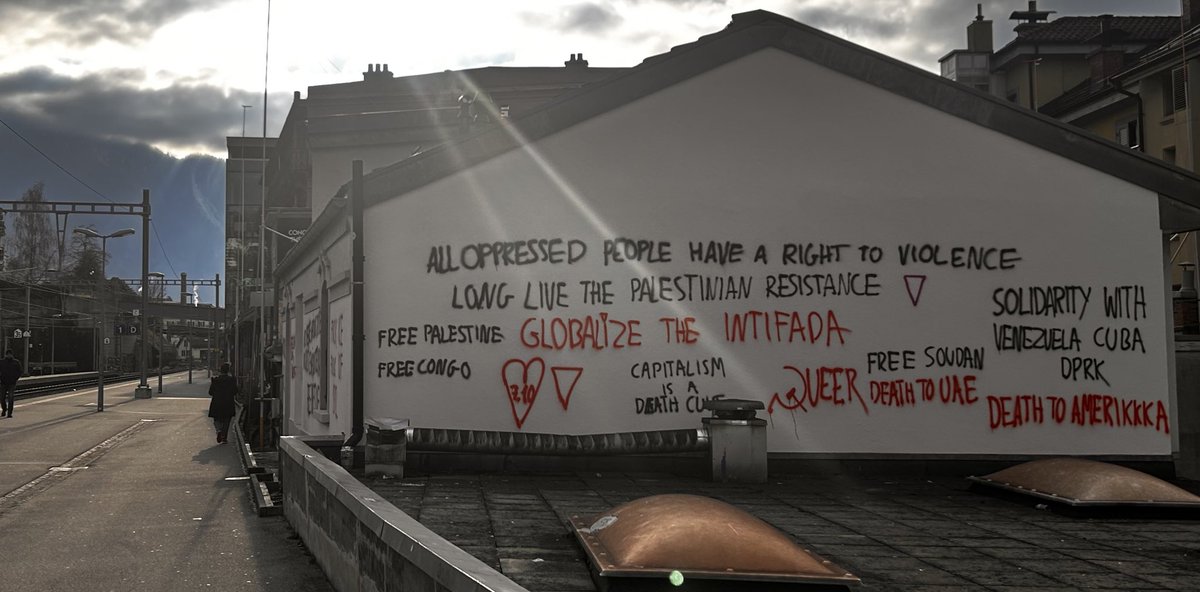 ALL OPPRESSED PEOPLE HAVE A RIGHT TO VIOLENCE
LONG LIVE THE PALESTINIAN RESISTANCE
FREE PALESTINE
GLOBALIZE THE INTIFADA
FREE CONGO
7.10
CAPITALISM
IS A
DEATH CULT
QUEER
FREE SOUDAN
DEATH TO UAE
SOLIDARITY WITH
VENEZUELA CUBA
DPRK
DEATH TO AMERIKKKA
1 D